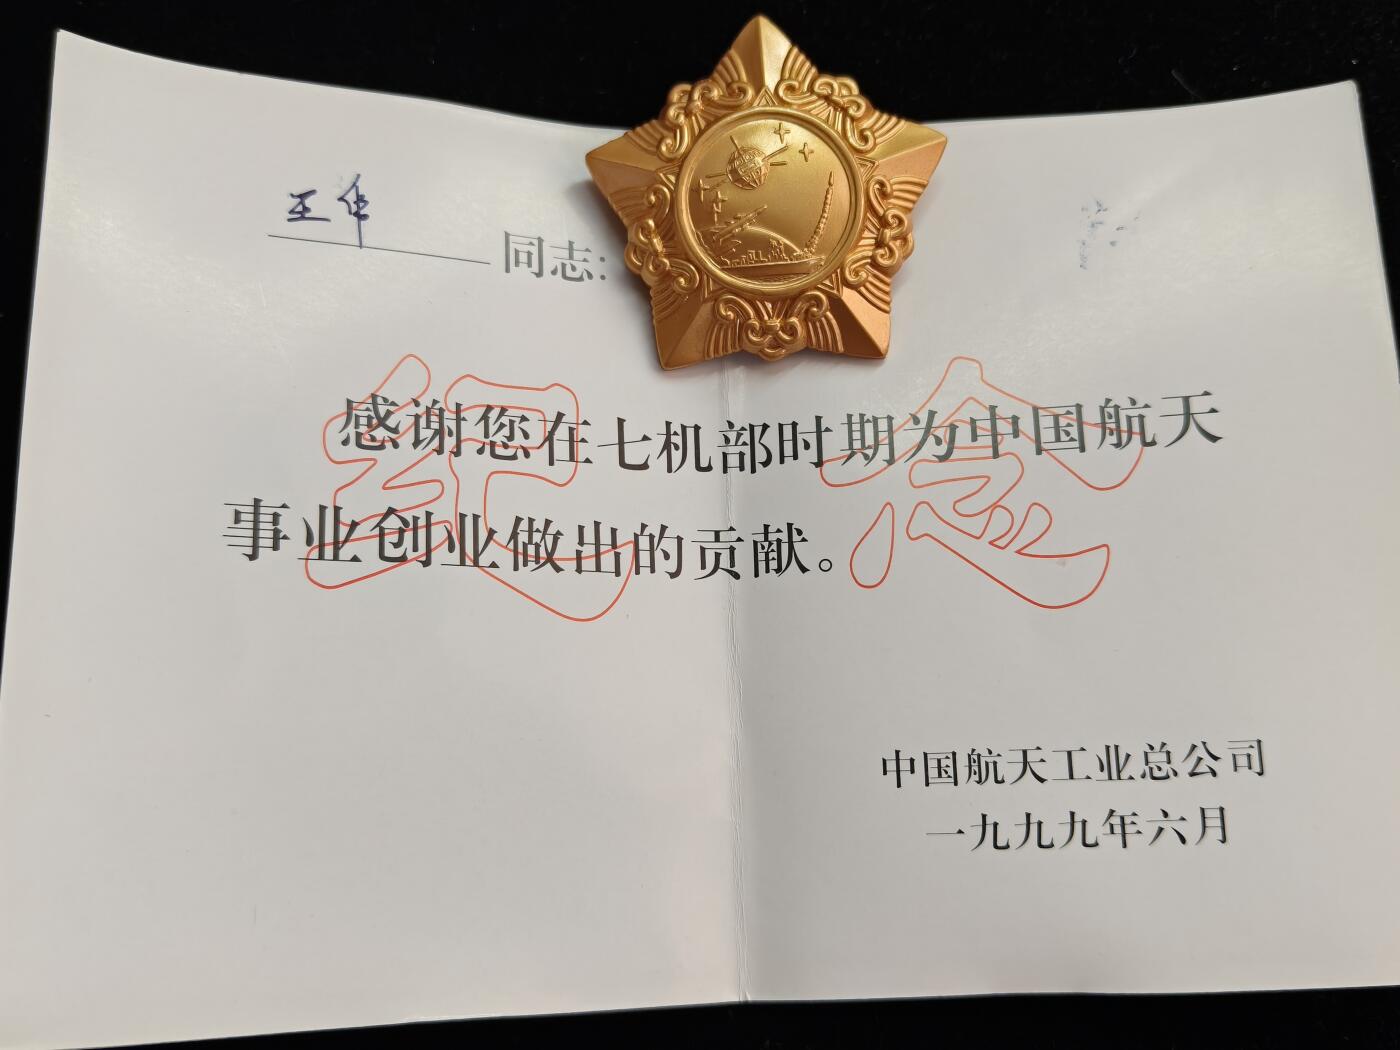 王伟 同志：
纪念
感谢您在七机部时期为中国航天
事业创业做出的贡献。
中国航天工业总公司
一九九九年六月